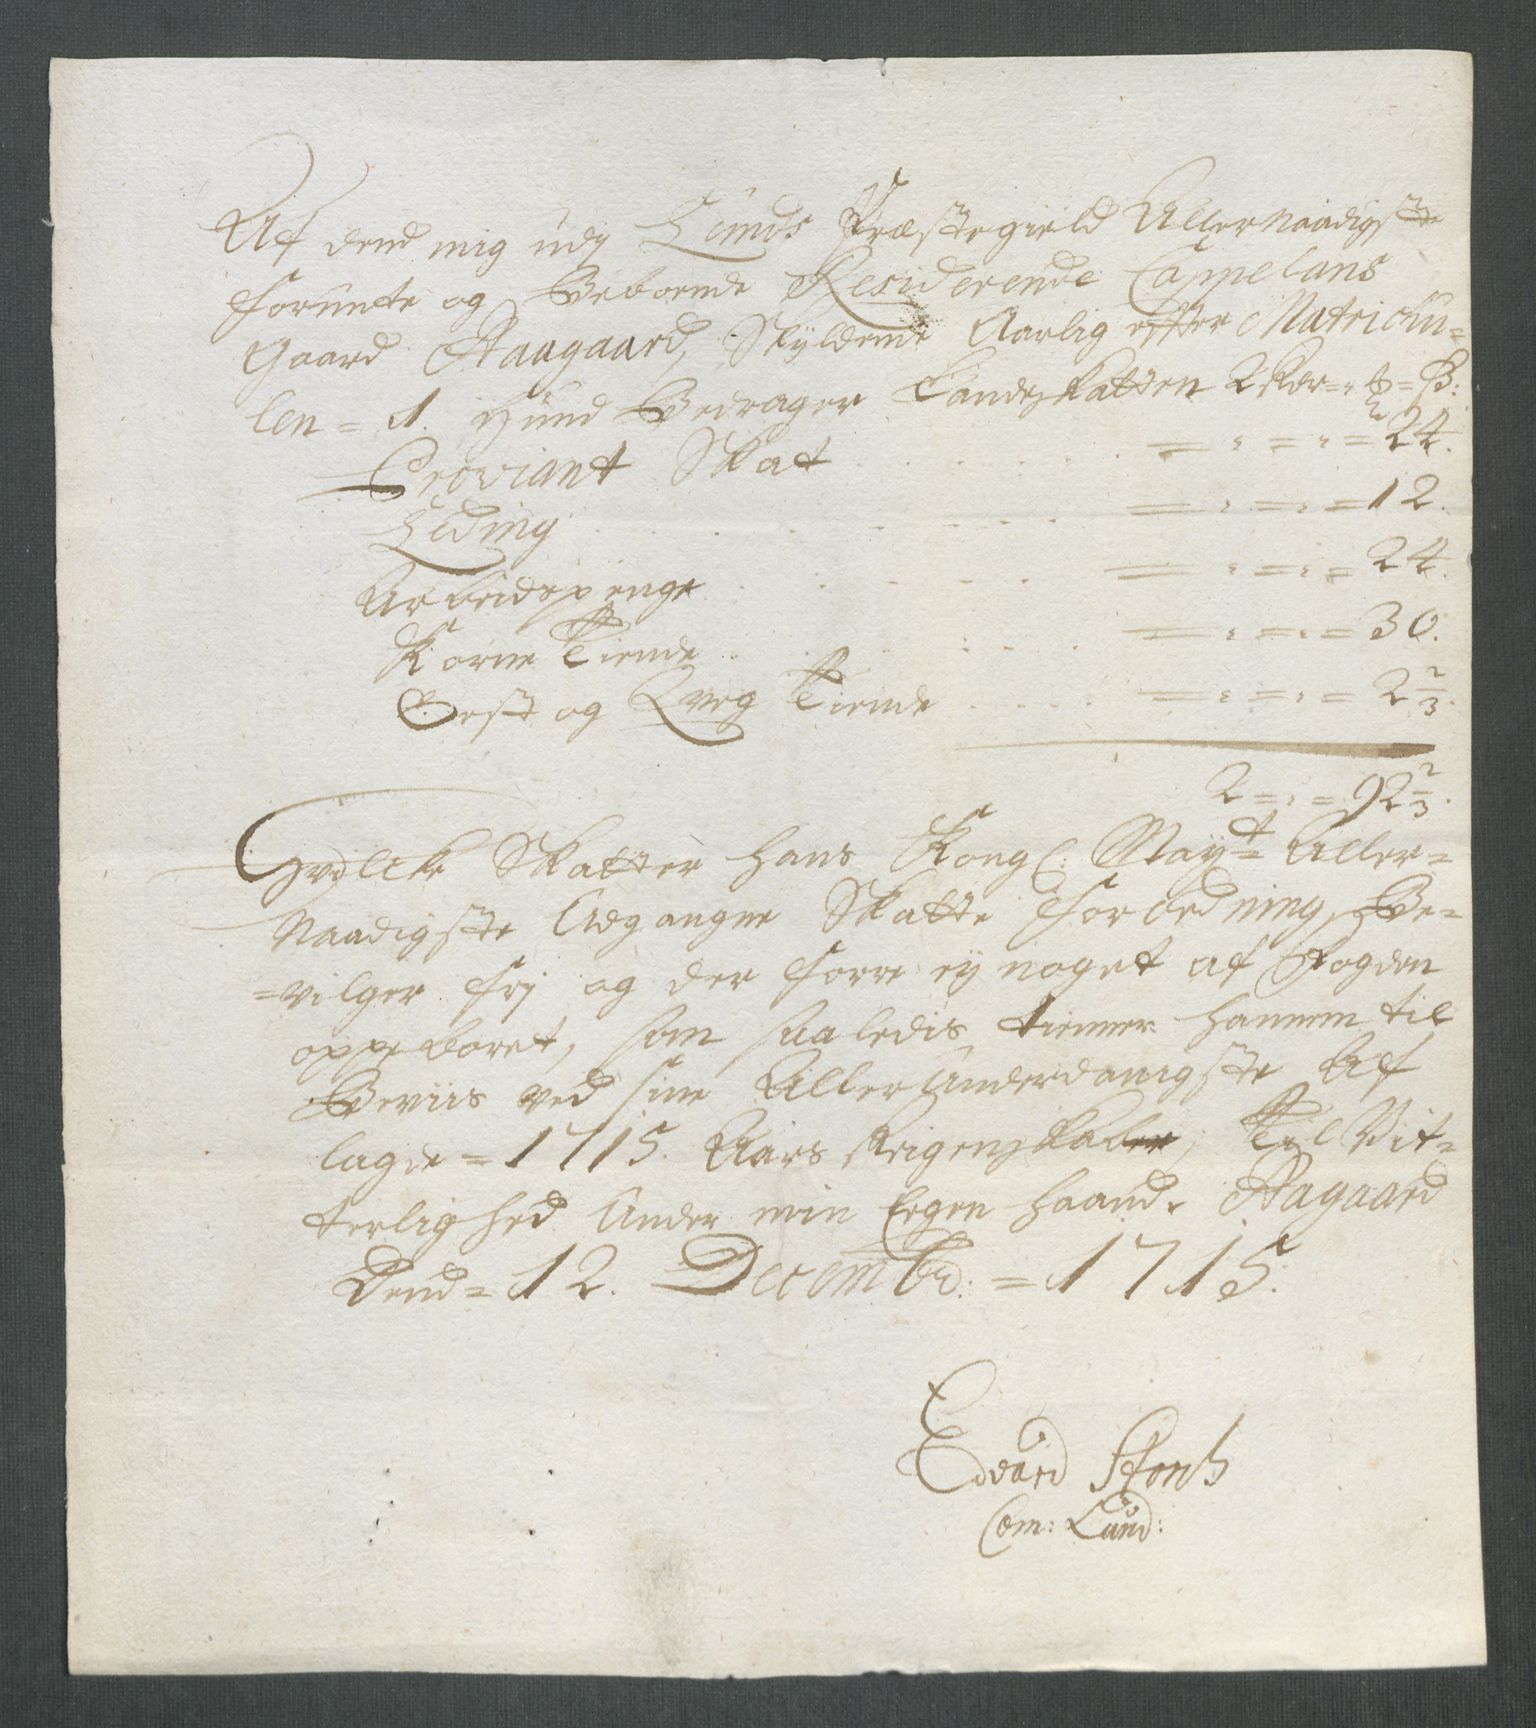 Af dend mig udj Lunds Præstegield Allernaadigste
forunte og Beboende Residerende Cappelans
Gaard Aaagaard, Skyldende Aarlig effter Matrichu=
len = 1. Hund Bedrager Landskatten 2 Rdr = " =
Proviant Skat . . . . . = " = " = 24.
Leding . . . . . = " = " = 12.
Arbeidspenge . . . . . = " = " = 24.
Korne Tiende . . . . . = " = " = 30.
Oest og Qveg Tiende . . . . = " = " = 2 2/3.
2 = " = 92 2/3.
Hvilcke Skatter hans Kongl: Mayt= Aller=
Naadigste Udgangne Skatte Forordning, Be=
=vilger frj og der forre ej noget af Fogden
oppeboret, som saaledis tienner hannem til
Beviis ved sine AllerUnderdanigste Af
lagde = 1715. Aars Reigenskaber, Til Vit=
terlighed Under min Eegen Haand. Aagaard
Dend = 12. Decembr: = 1715.
Edvard
Com: Lund: